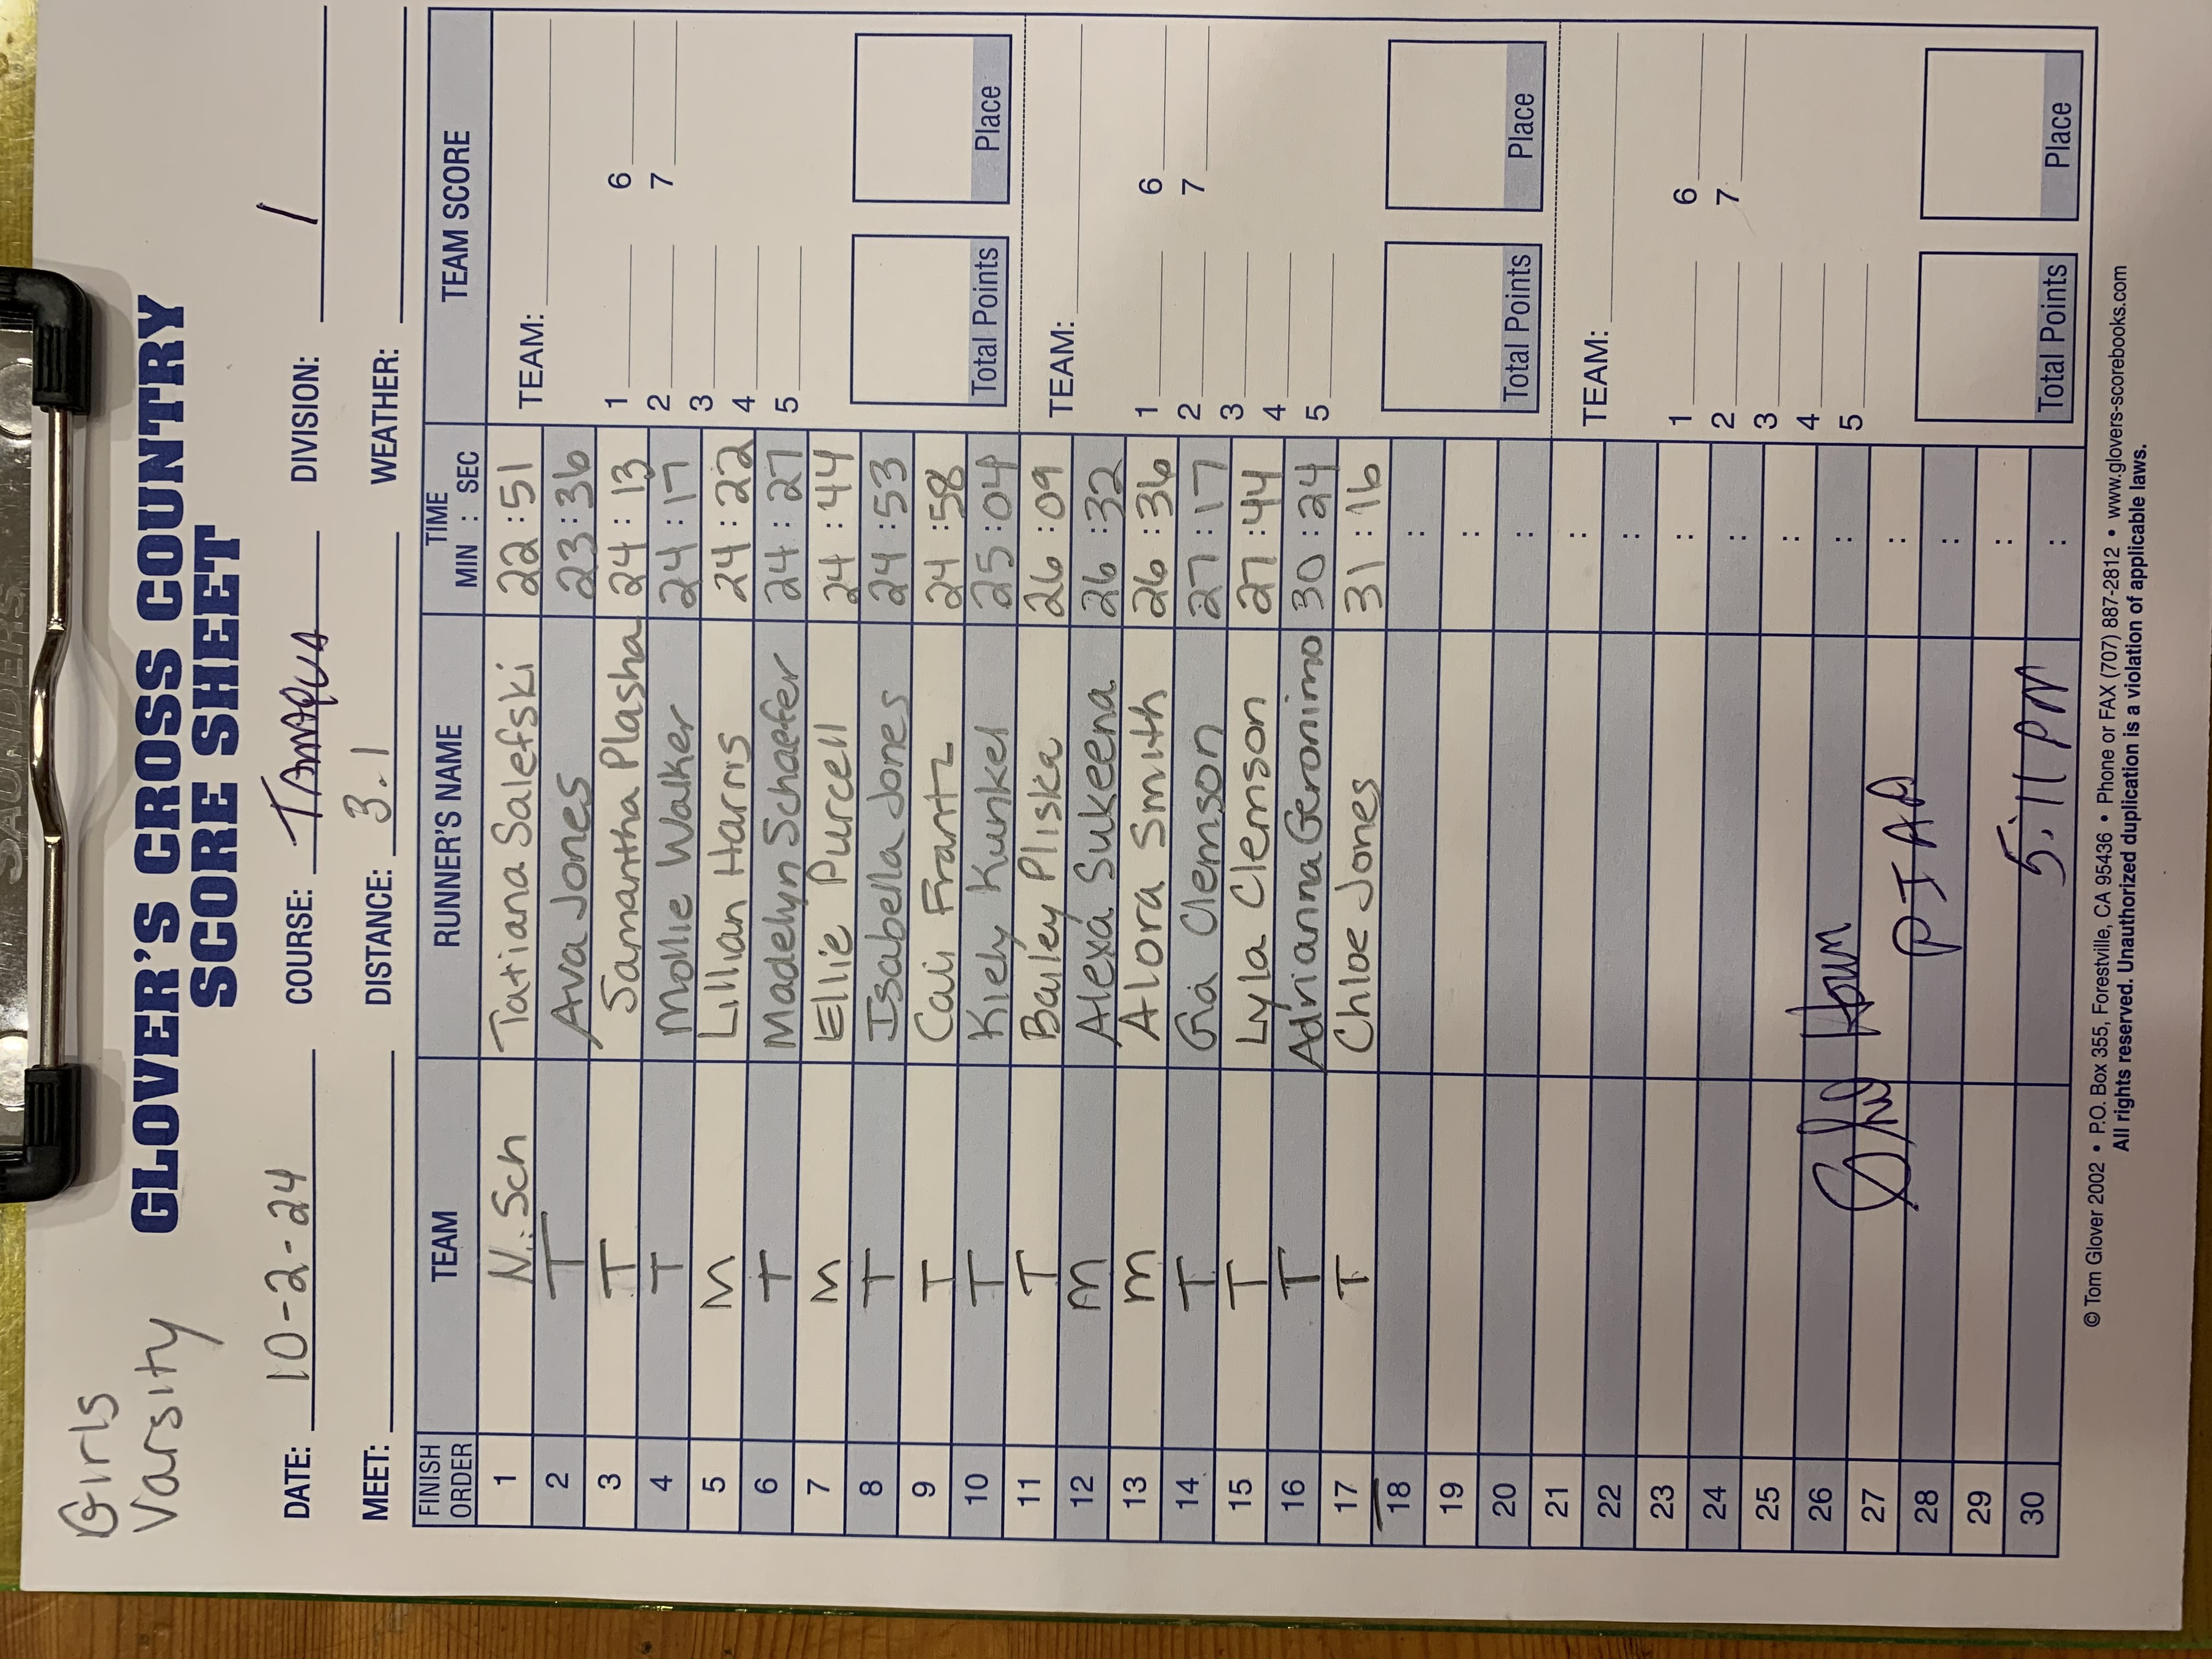 SAUNDERS
Girls
Varsity
GLOVER'S CROSS COUNTRY
SCORE SHEET
DATE: 10-2-24 COURSE: TAMAQUA DIVISION: 1
MEET: DISTANCE: 3.1 WEATHER:
FINISH ORDER TEAM RUNNER'S NAME TIME MIN : SEC TEAM SCORE
1 N. Sch Tatiana Salefski 22:51
2 T Ava Jones 23:36
3 T Samantha Plasha 24:13
4 T Mollie Walker 24:17
5 M Lillian Harris 24:22
6 T Madelyn Schaefer 24:27
7 M Ellie Purcell 24:44
8 T Isabella Jones 24:53
9 T Cali Frantz 24:58
10 T Kiely Kunkel 25:04
11 T Bailey Pliska 26:09
12 M Alexa Sukeena 26:32
13 M Alora Smith 26:36
14 T Gia Clemson 27:17
15 T Lyla Clemson 27:44
16 T Adrianna Geronimo 30:24
17 T Chloe Jones 31:16
18 :
19 :
20 :
21 :
22 :
23 :
24 :
25 :
26 :
27 :
28 PIAA :
29 :
30 5:11 PM :
TEAM:
1 6
2 7
3
4
5
Total Points Place
TEAM:
1 6
2 7
3
4
5
Total Points Place
TEAM:
1 6
2 7
3
4
5
Total Points Place
© Tom Glover 2002 • P.O. Box 355, Forestville, CA 95436 • Phone or FAX (707) 887-2812 • www.glovers-scorebooks.com
All rights reserved. Unauthorized duplication is a violation of applicable laws.